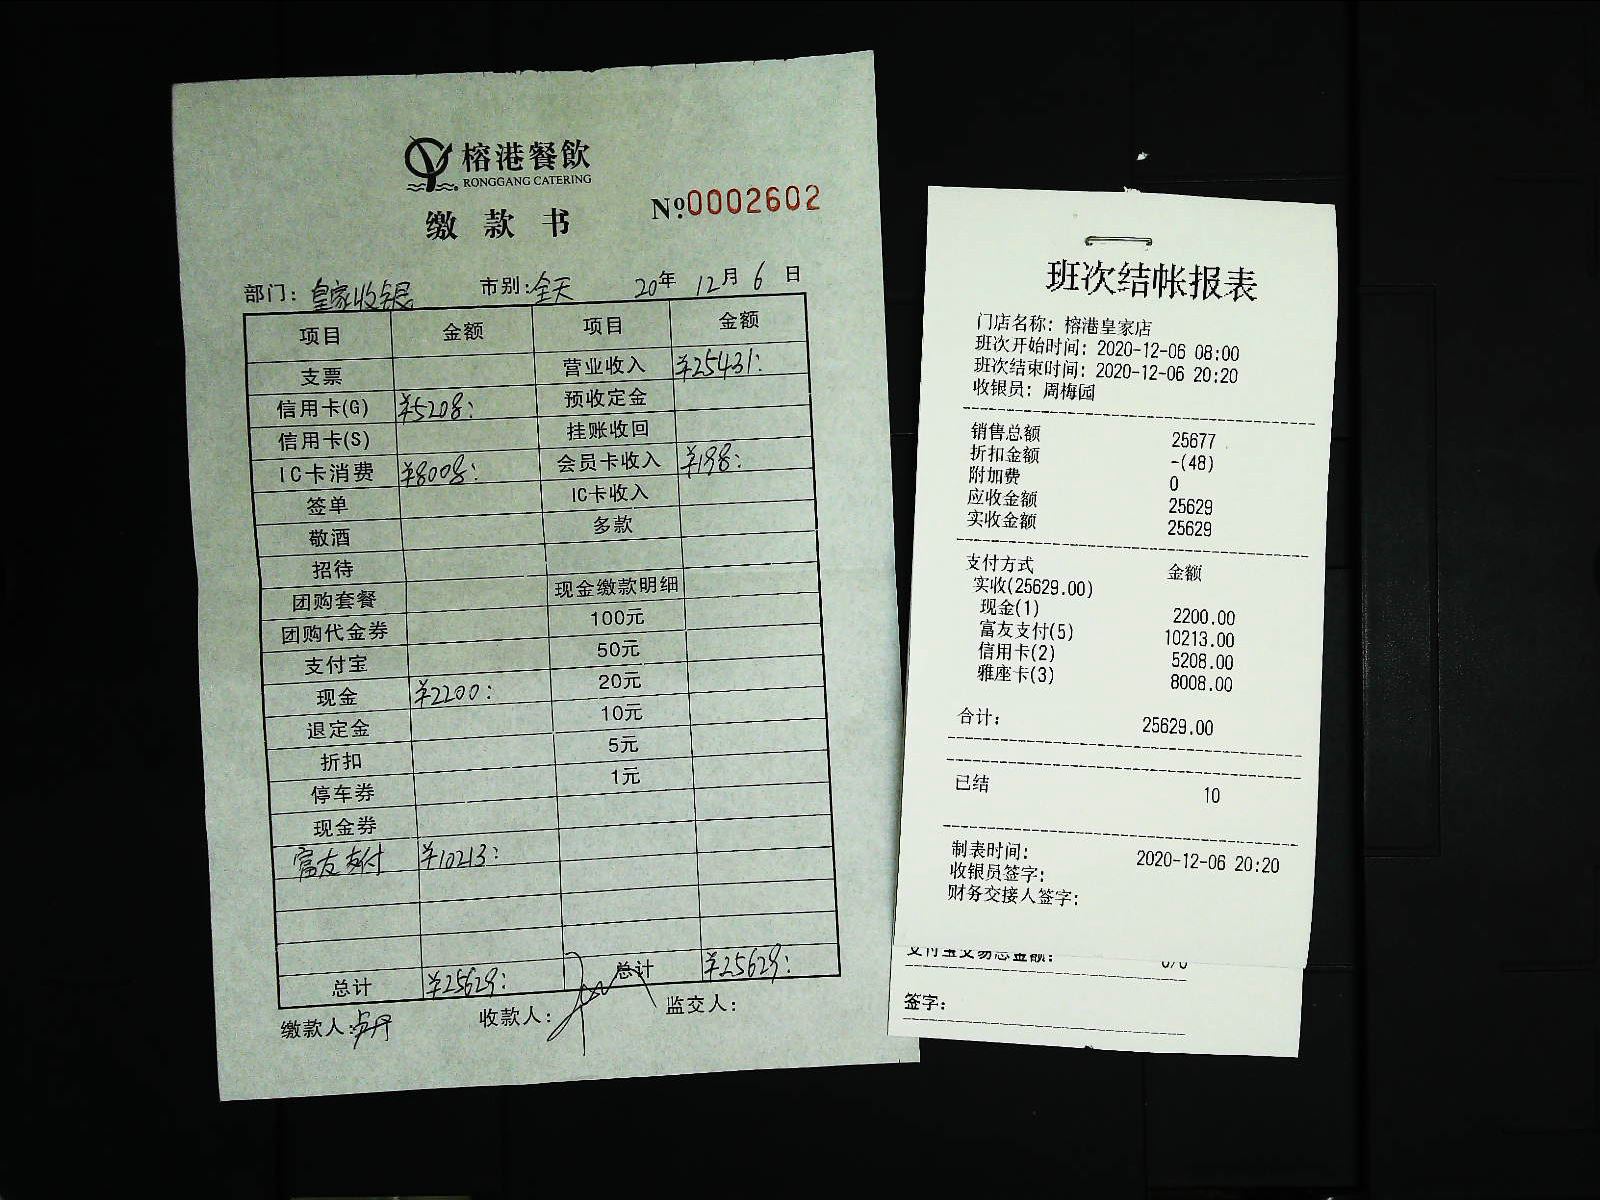 榕港餐飲
RONGGANG CATERING
缴款书
№0002602
部门：皇家收银 市别：全天 20年 12月 6日
项目 金额 项目 金额
支票 营业收入 ¥25431:
信用卡(G) ¥5208: 预收定金
信用卡(S) 挂账收回
IC卡消费 ¥8008: 会员卡收入 ¥198:
签单 IC卡收入
敬酒 多款
招待
团购套餐 现金缴款明细
团购代金券 100元
支付宝 50元
现金 ¥2200: 20元
退定金 10元
折扣 5元
停车券 1元
现金券
富友支付 ¥10213:
总计 ¥25629: 总计 ¥25629:
缴款人：卢丹 收款人： 监交人：
班次结帐报表
门店名称：榕港皇家店
班次开始时间：2020-12-06 08:00
班次结束时间：2020-12-06 20:20
收银员：周梅园
销售总额 25677
折扣金额 -(48)
附加费 0
应收金额 25629
实收金额 25629
支付方式 金额
实收(25629.00)
现金(1) 2200.00
富友支付(5) 10213.00
信用卡(2) 5208.00
雅座卡(3) 8008.00
合计： 25629.00
已结 10
制表时间： 2020-12-06 20:20
收银员签字：
财务交接人签字：
支付宝交易总金额： 0/0
签字：